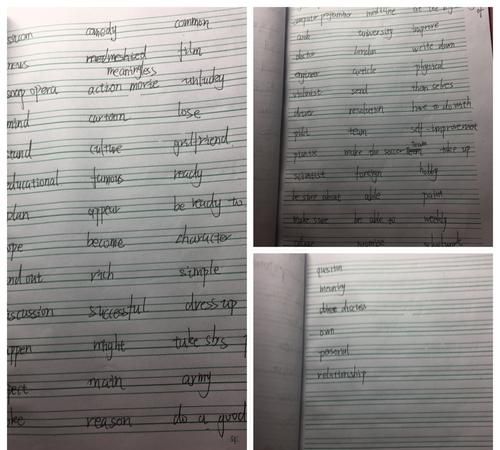 comedy common
news meaningless film
soap opera action movie unlucky
mind cartoon lose
stand culture girlfriend
educational famous ready
plan appear be ready to
hope become character
find out rich simple
discussion successful dress up
happen might take sb's
expect main army
joke reason do a good
computer programmer medicine at the
cook university improve
doctor London write down
engineer article physical
violinist send themselves
driver resolution have to do with
pilot team self-improvement
pianist make the soccer team take up
scientist foreign hobby
be sure about able paint
make sure be able to weekly
question
meaning
discuss
own
personal
relationship